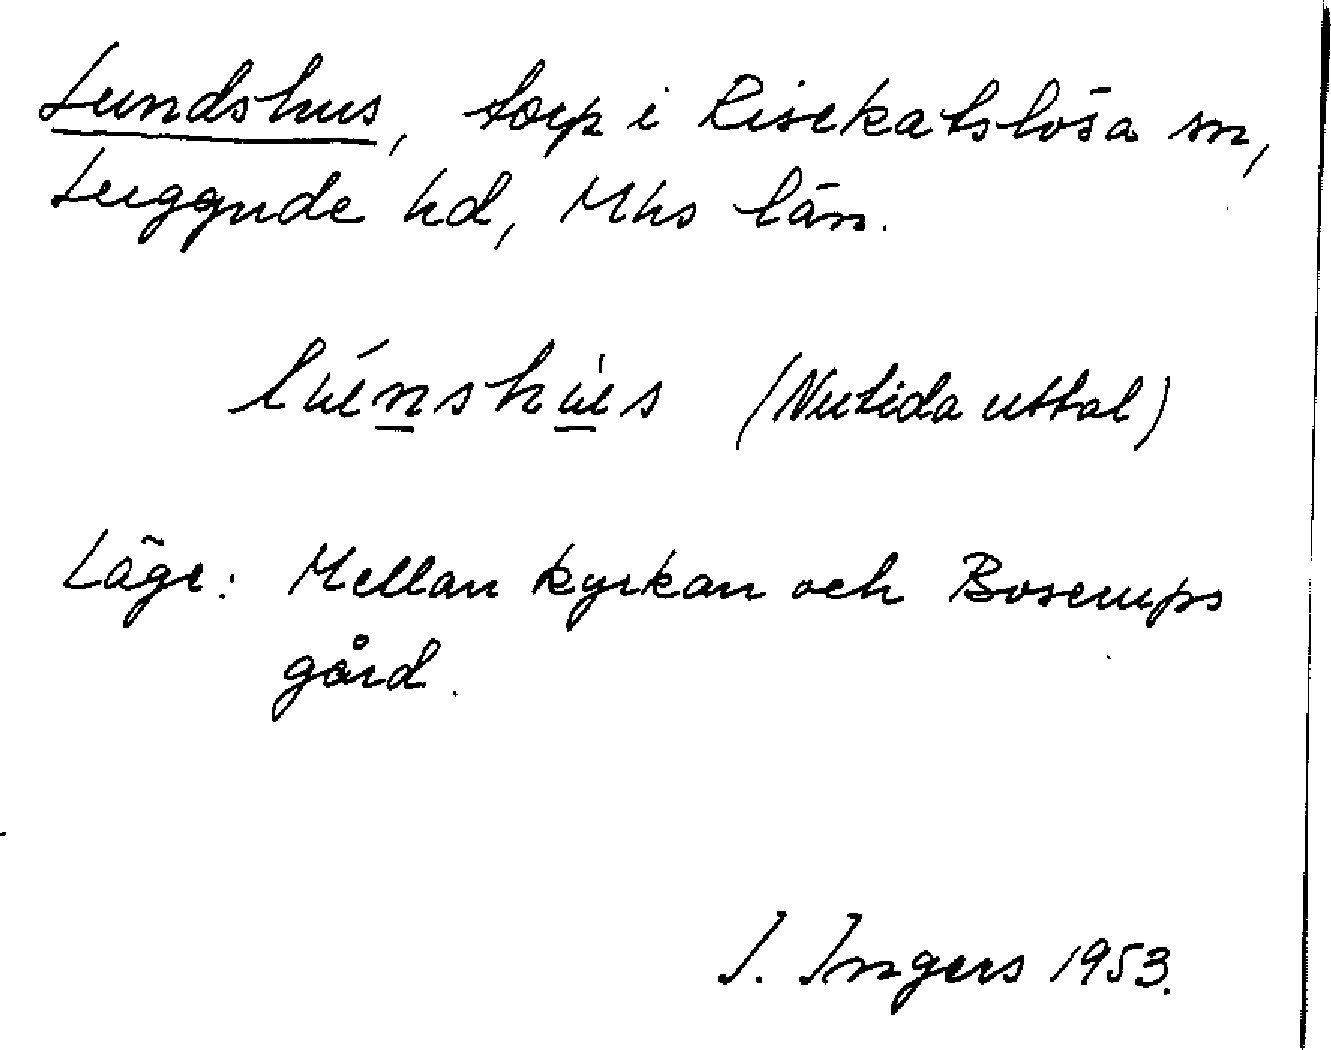 Lundshus, torp i Risekatslösa sn,
Luggude hd, Mhs län.
lúnshùs (Nutida uttal)
Läge: Mellan kyrkan och Boserups
gård.
I. Ingers 1953.